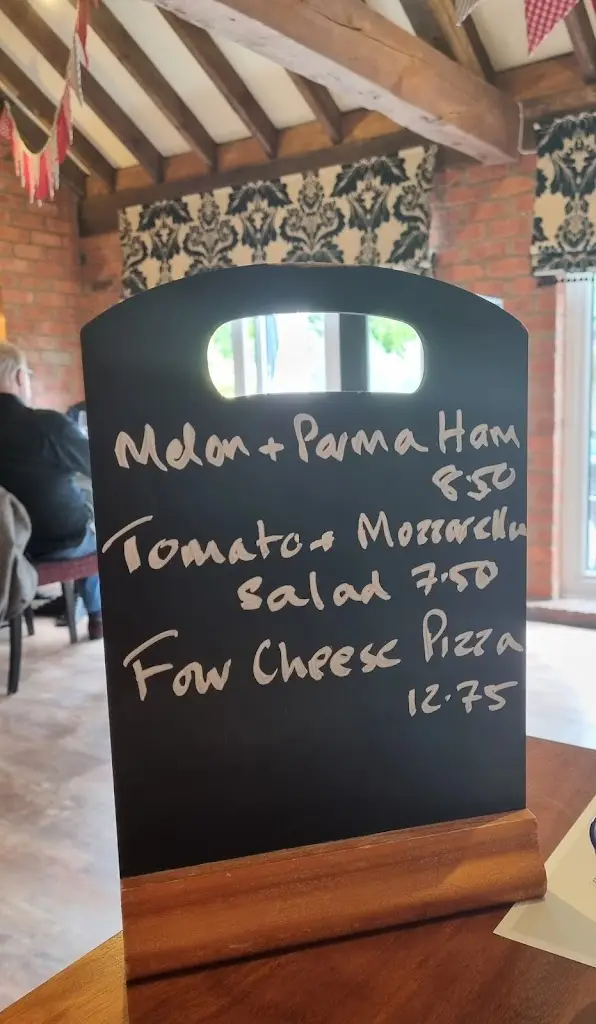 Melon + Parma Ham
8.50
Tomato + Mozzarella
Salad 7.50
Four Cheese Pizza
12.75